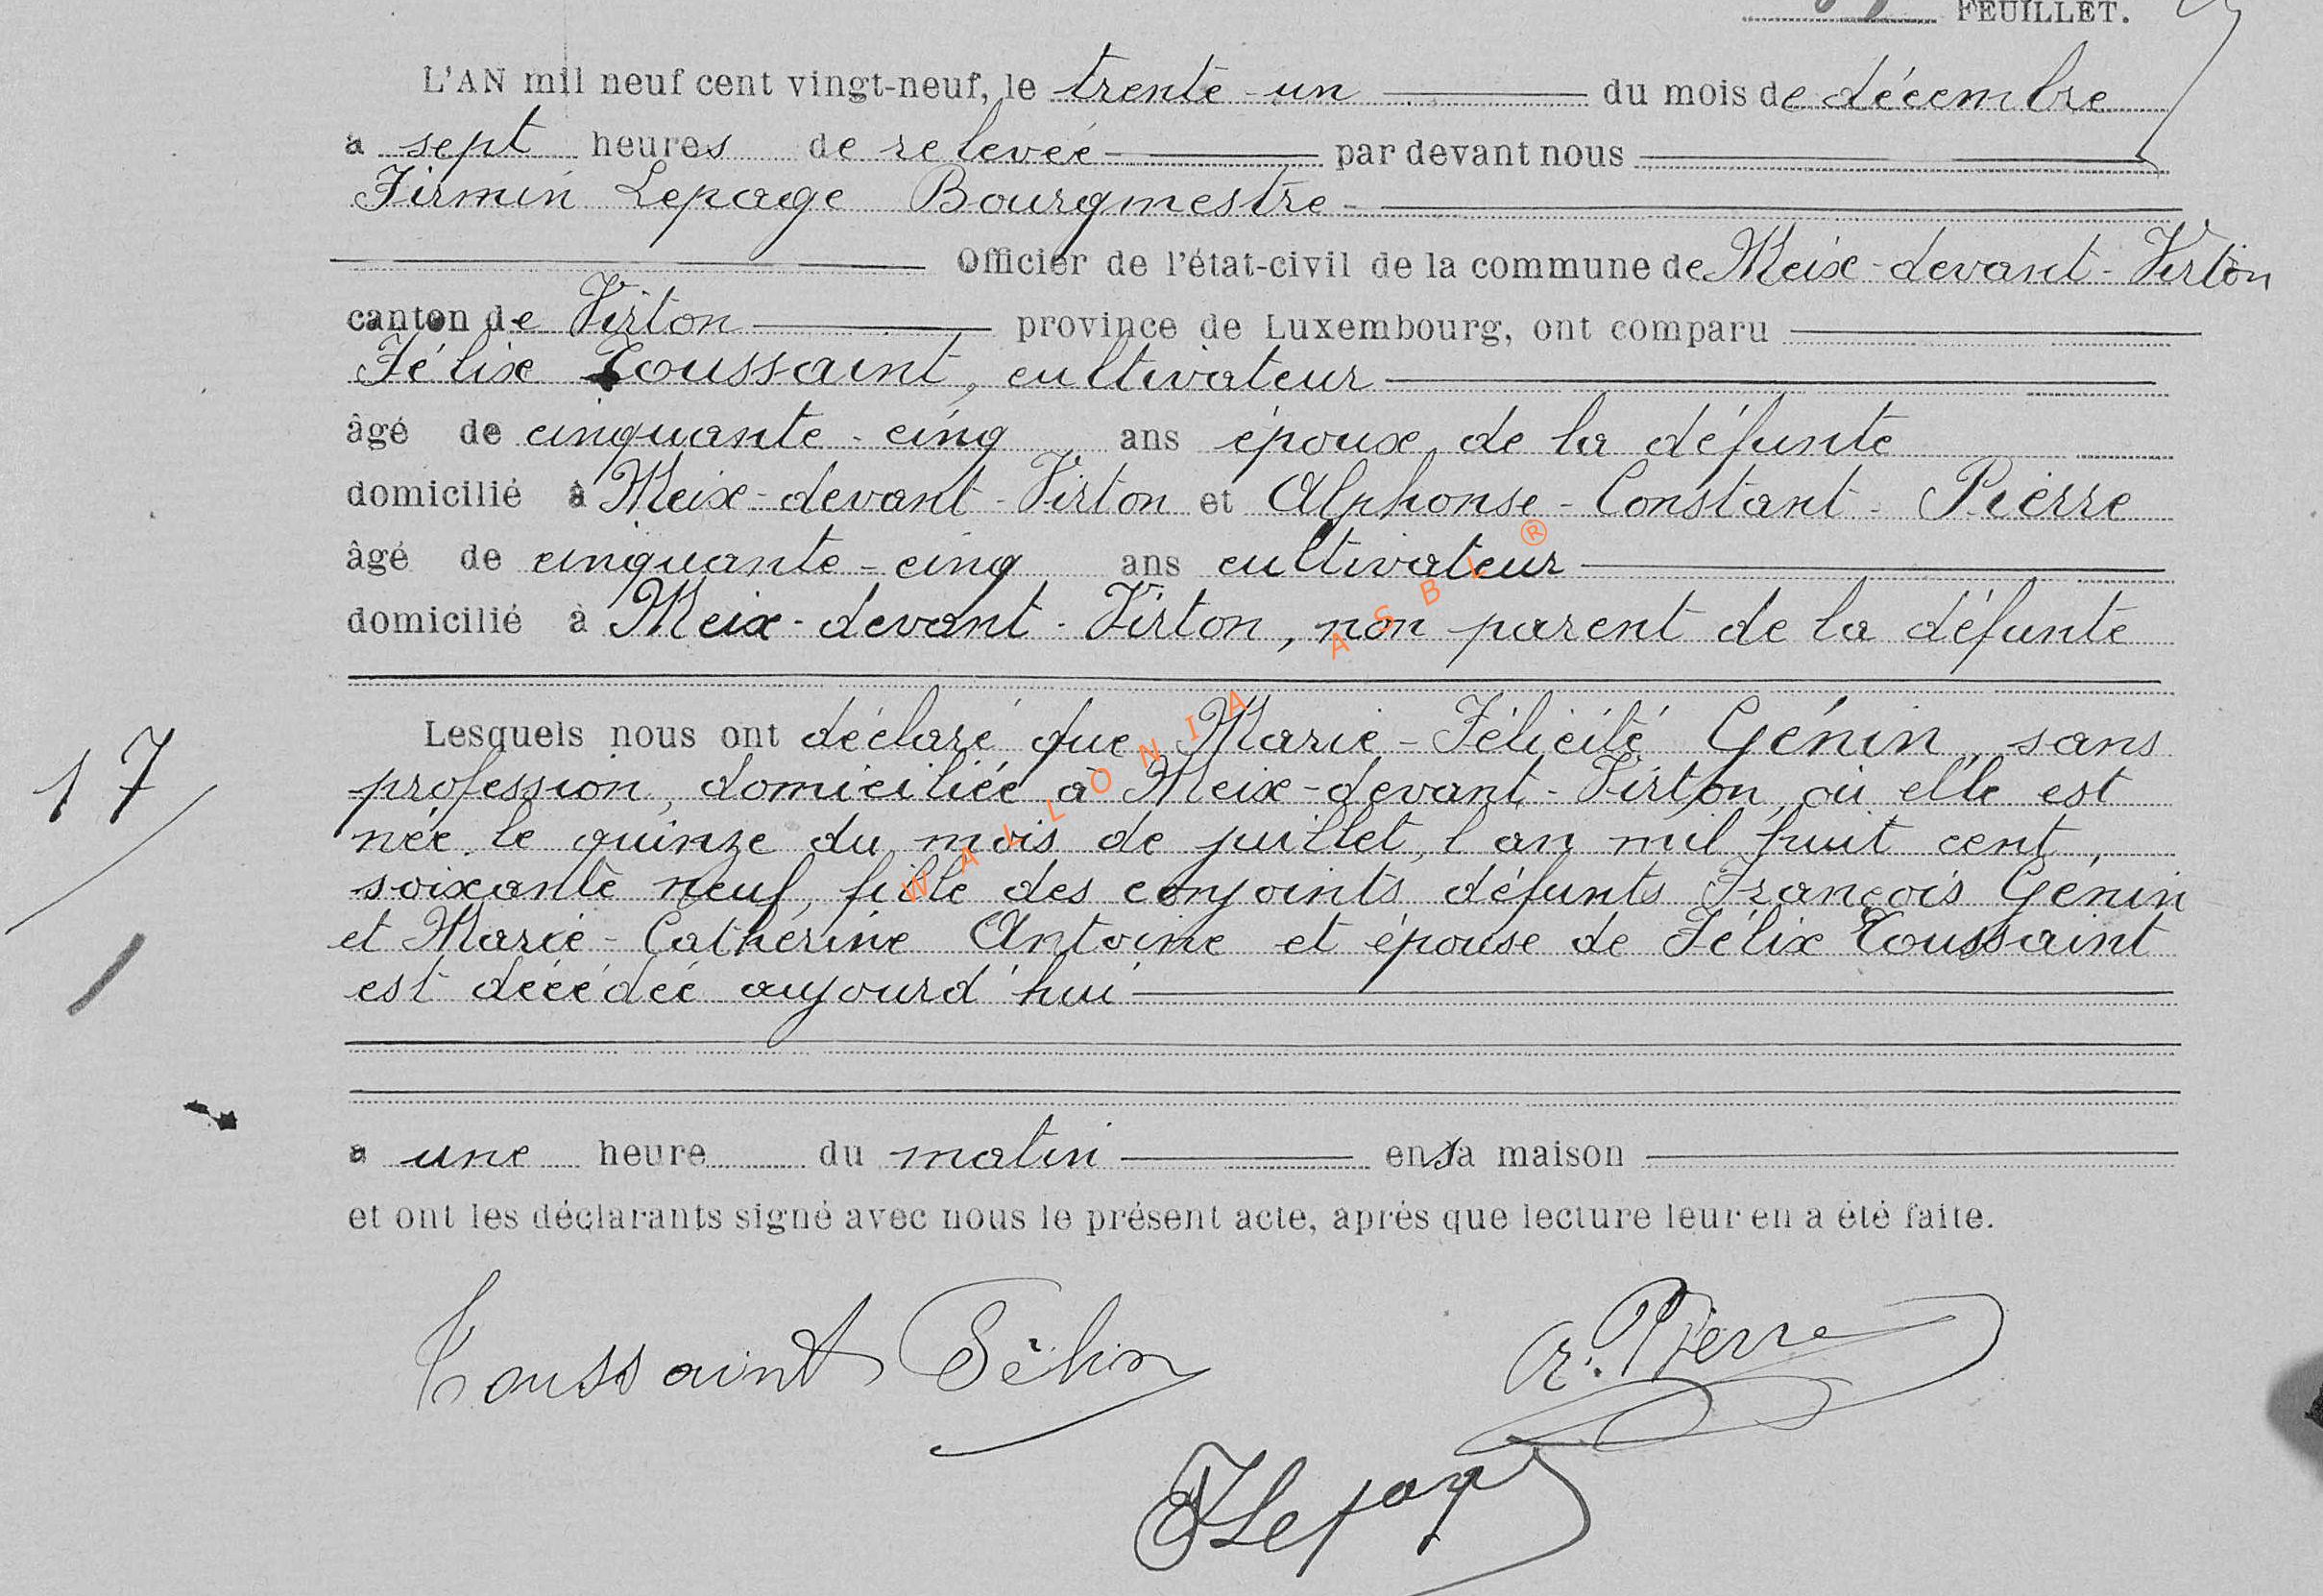 FEUILLET.
L'AN mil neuf cent vingt-neuf, le trente-un du mois de décembre
à sept heures de relevée par devant nous
Firmin Lepage Bourgmestre
Officier de l'état-civil de la commune de Meix-devant-Virton
canton de Virton province de Luxembourg, ont comparu
Félix Toussaint, cultivateur
âgé de cinquante-cinq ans époux de la défunte
domicilié à Meix-devant-Virton et Alphonse-Constant-Pierre
âgé de cinquante-cinq ans cultivateur
domicilié à Meix-devant-Virton, non parent de la défunte
Lesquels nous ont déclaré que Marie-Félicité Génin, sans
17
profession, domiciliée à Meix-devant-Virton, où elle est
née le quinze du mois de juillet, l'an mil huit cent,
soixante neuf, fille des conjoints défunts François Génin
et Marie-Catherine Antoine et épouse de Félix Toussaint
est décédée aujourd'hui
à une heure du matin en sa maison
et ont les déclarants signé avec nous le présent acte, après que lecture leur en a été faite.
Toussaint Félix
A. Pierre
F Lepage
WALLONIA ASBL ®